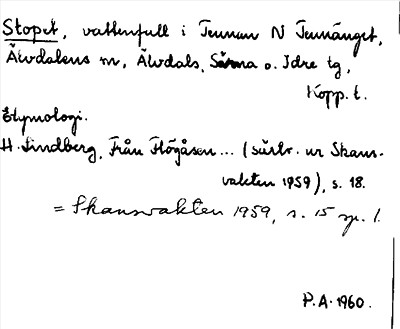 Stopet, vattenfall i Tennan N Tennänget,
Älvdalens sn, Älvdals, Särna o. Idre tg,
Kopp. l.
Etymologi.
H. Lindberg, Från Flögåsen... (särtr. ur Skans-
vakten 1959), s. 18.
= Skansvakten 1959, s. 15 sp. 1.
P.A. 1960.